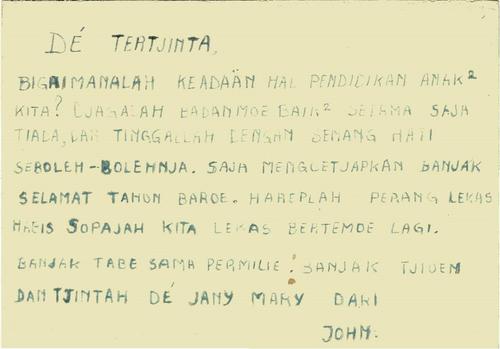 DÉ TERTJINTA,
BIGAIMANALAH KEADAÄN HAL PENDIDIKAN ANAK²
KITA? DJAGALAH BADANMOE BAIK² SELAMA SAJA
TIADA, DAN TINGGALLAH DENGAN SENANG HATI
SEBOLEH-BOLEHNJA. SAJA MENGLETJAPKAN BANJAK
SELAMAT TAHON BAROE. HAREPLAH PERANG LEKAS
HABIS SOPAJAH KITA LEKAS BERTEMOE LAGI.
BANJAK TABE SAMA PERMILIE! BANJAK TJIOEM
DAN TJINTAH DÉ JANY MARY DARI
JOHN.